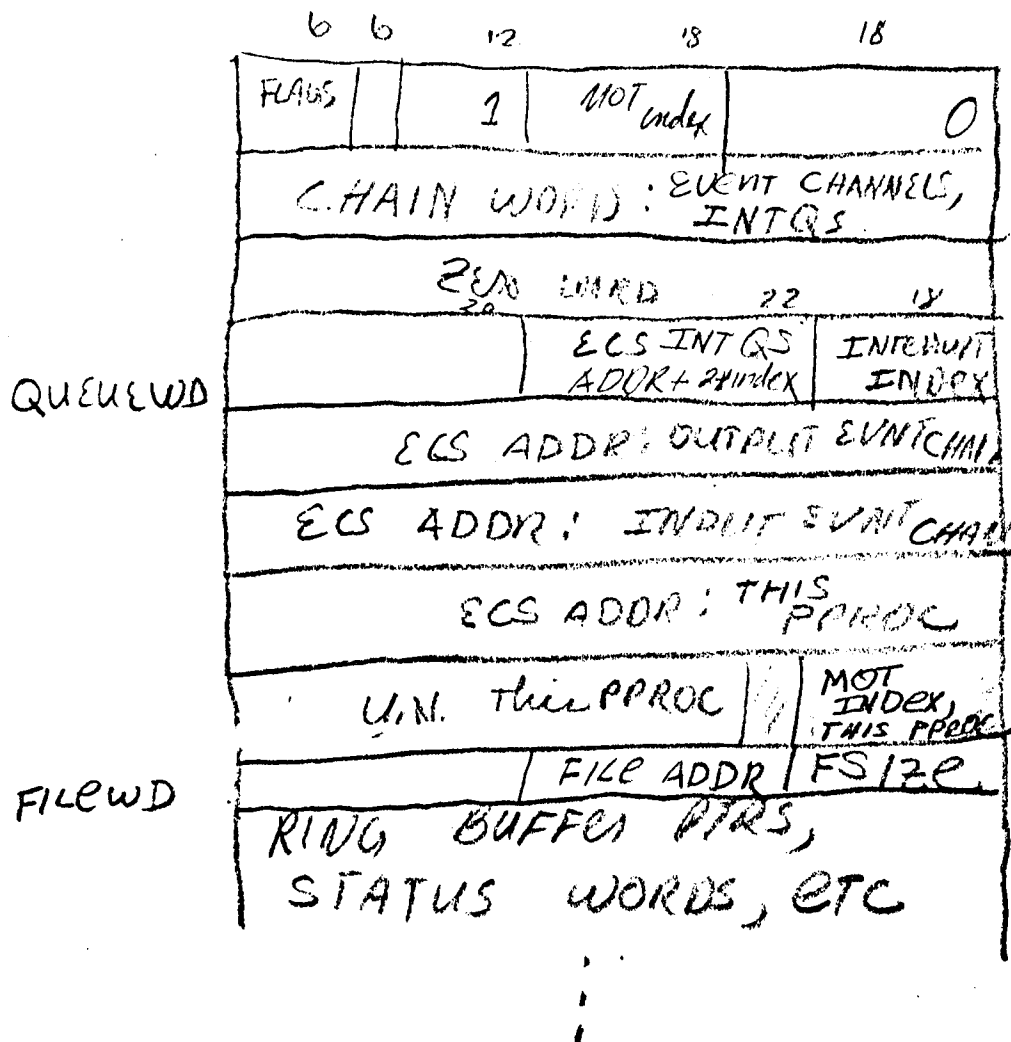 6 6 12 18 18
FLAGS 1 MOT index 0
CHAIN WORD: EVENT CHANNELS,
INTQS
ZERO WORD
20 22 18
QUEUEWD
ECS INTQS
ADDR + 2*index
INTERRUPT
INDEX
ECS ADDR: OUTPUT EVNT CHAN
ECS ADDR: INPUT EVNT CHAN
ECS ADDR: THIS
PPROC
U.N. This PPROC
MOT
INDEX,
THIS PPROC
FILEWD
FILE ADDR FSIZE
RING BUFFER PTRS,
STATUS WORDS, ETC